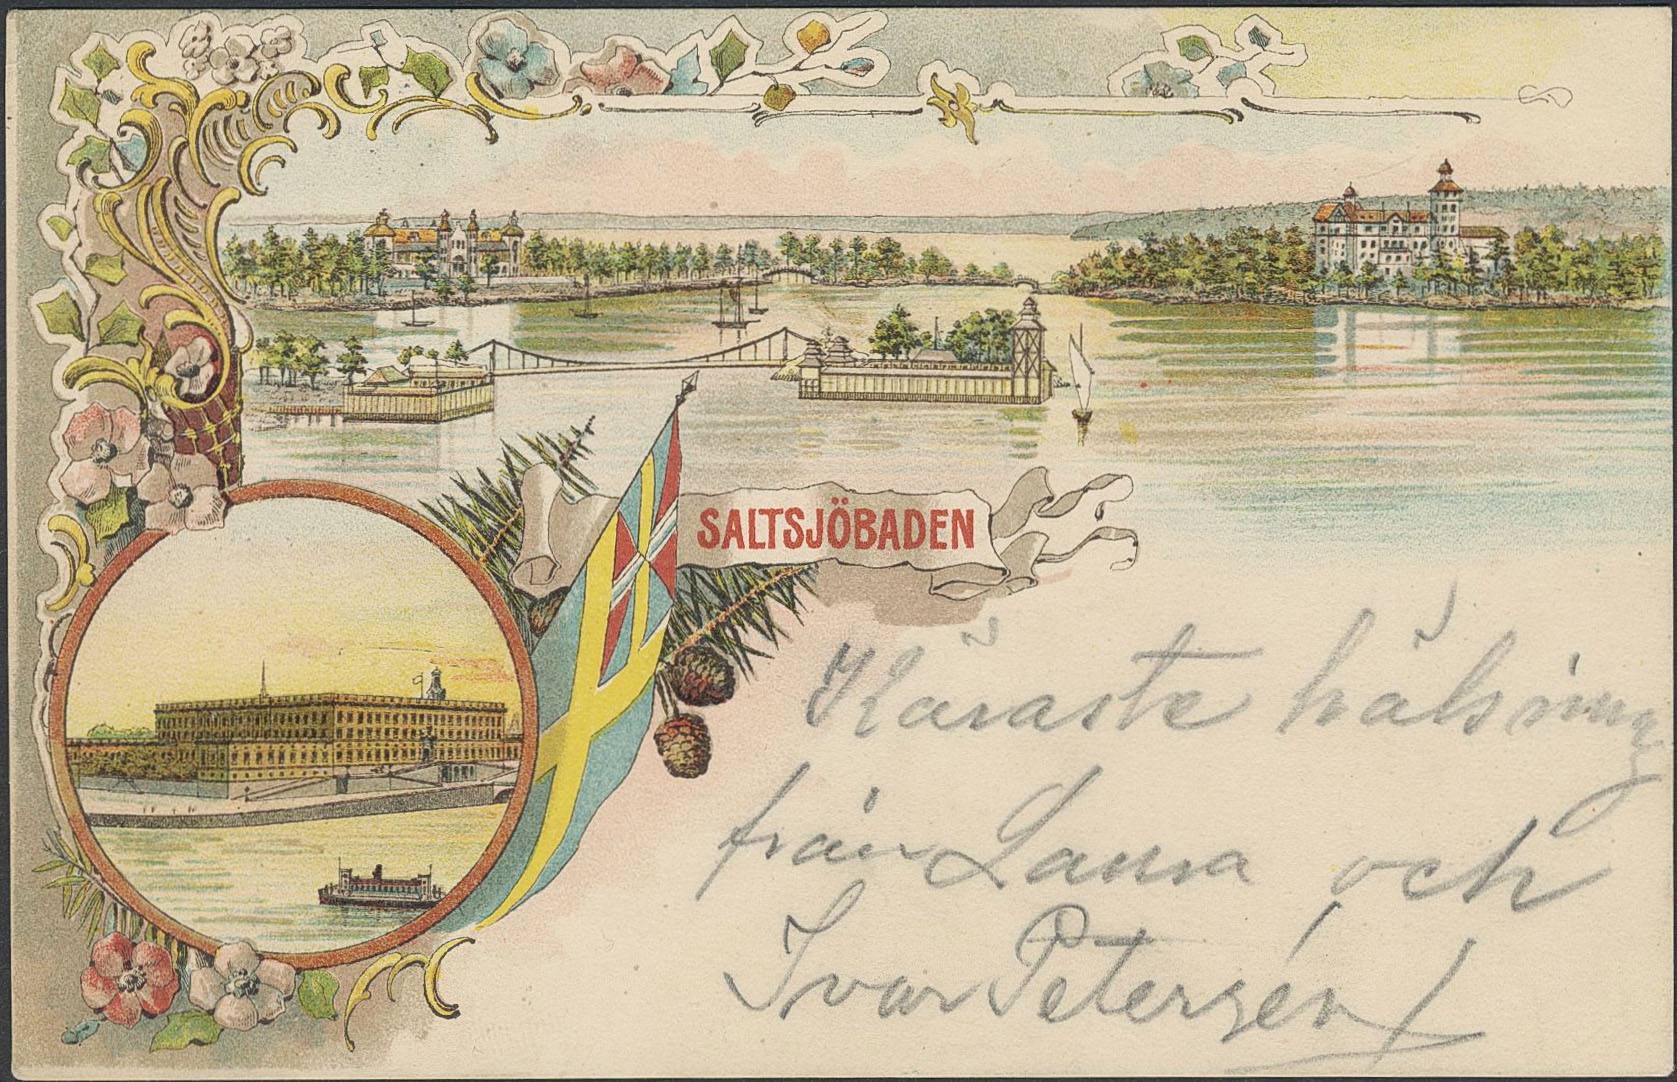 SALTSJÖBADEN
Käraste hälsning
från Laura och
Ivar Petersén